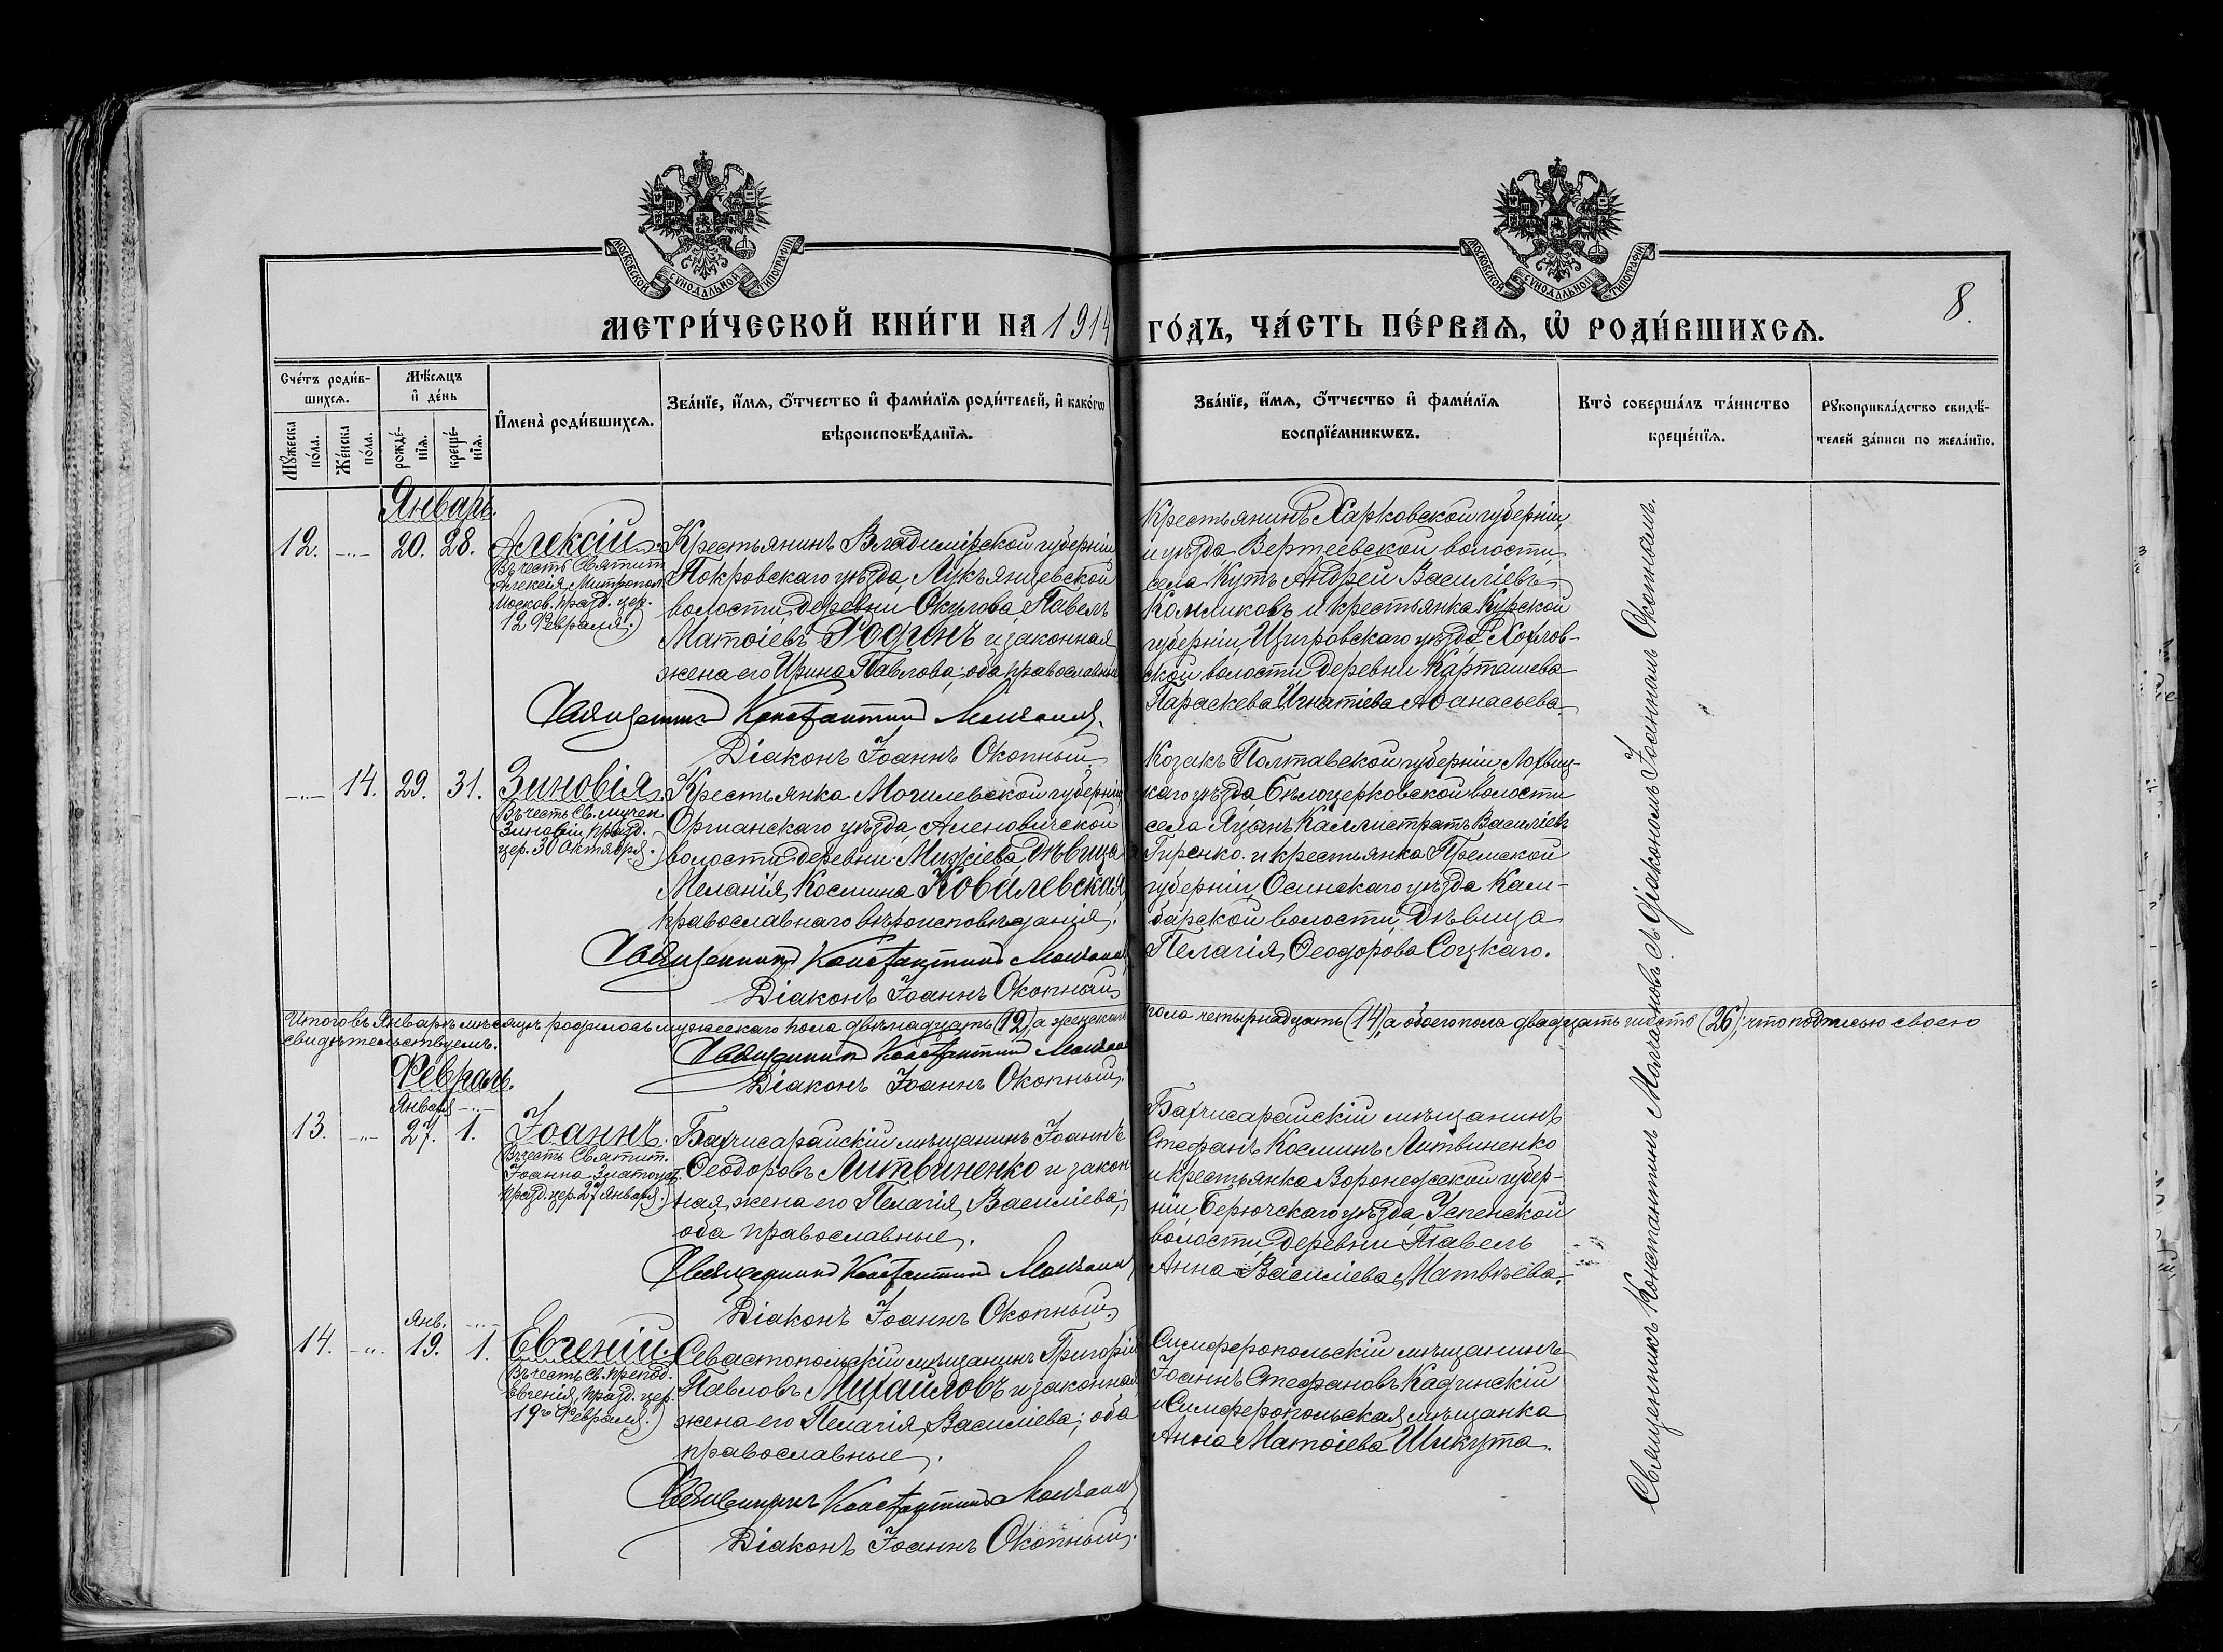 МОСКОВСКОЙ СѴНОДАЛЬНОЙ ТИПОГРАФІИ
МОСКОВСКОЙ СѴНОДАЛЬНОЙ ТИПОГРАФІИ
8.
МЕТРИ́ЧЕСКОЙ КНИ́ГИ НА 1914 ГО́ДЪ, ЧА́СТЬ ПЕ́РВАѦ, Ѡ РОДИ́ВШИХСѦ.
Сче́тъ роди́в-
шихсѧ.
Мꙋжеска по́ла.
Же́нска по́ла.
Мѣ́сѧцъ
и де́нь
рожде́-
нїѧ.
креще́-
нїѧ.
Имена̀ роди́вшихсѧ.
Зва́нїе, и́мѧ, о́тчество и фами́лїѧ роди́телей, и како́гѡ
вѣроисповѣ́данїѧ.
Зва́нїе, и́мѧ, о́тчество и фами́лїѧ
воспрїе́мникѡвъ.
Кто̀ соверша́лъ та́инство
креще́нїѧ.
Рꙋкоприкла́дство свидѣ́-
телей за́писи по жела́нїю.
Январь.
12. -"- 20. 28.
Алексій.
(Въ честь Святит.
Алексія, Митропол.
Москов. празд. цер.
12 Февраля.)
Крестьянинъ Владимірской губерніи
Покровскаго уѣзда, Лукьянцевской
волости, деревни Окулова Павелъ
Матѳіевъ Родинъ и законная
жена его Ирина Павлова; оба православные
Священникъ Константинъ Молчановъ.
Діаконъ Іоаннъ Окопный.
Крестьянинъ Харковской губерніи
и уѣзда Вертеевской волости
села Кутъ Андрей Василіевъ
Комликовъ и крестьянка Курской
губерніи, Щигровскаго уѣзда, Хохлов-
ской волости деревни Карташева
Параскева Игнатіева Аѳанасьева.
-"- 14. 29. 31.
Зиновія.
(Въ честь Св. мучен.
Зиновіи, празд.
цер. 30 Октября.)
Крестьянка Могилевской губерніи
Оршанскаго уѣзда, Аленовичской
волости деревни Михіева дѣвица
Меланія Космина Ковалевская,
православнаго вѣроисповѣданія.
Священникъ Константинъ Молчановъ
Діаконъ Іоаннъ Окопный
Козакъ Полтавской губерніи Лохвиц-
каго уѣзда Бѣлоцерковской волости
села Яцынъ Каллистратъ Василіевъ
Гиренко и крестьянка Премской
губерніи, Осинскаго уѣзда Кам-
барской волости, дѣвица
Пелагія Ѳеодорова Соцкаго.
Итого въ Январѣ мѣсяцѣ родилось мужескаго пола двѣнадцать (12), а женскаго пола четырнадцать (14), а обоего пола двадцать шесть (26); что подписью своею
свидѣтельствуемъ.
Священникъ Константинъ Молчановъ
Діаконъ Іоаннъ Окопный.
Февраль.
Января -"-
13. -"- 27. 1.
Іоаннъ.
(Въ честь Святит.
Іоанна Златоуст.
празд. цер. 27 Января.)
Бахчисарайскій мѣщанинъ Іоаннъ
Ѳеодоровъ Литвиненко и закон-
ная жена его Пелагія Василіева;
оба православные.
Священникъ Константинъ Молчановъ
Діаконъ Іоаннъ Окопный
Бахчисарайскій мѣщанинъ
Стефанъ Косминъ Литвиненко
и крестьянка Воронежской губер-
ніи, Бирючскаго уѣзда, Успенской
волости, деревни Павелъ
Анна Василіева Матвѣева.
Янв. -"-
14. -"- 19. 1.
Евгеній.
(Въ честь Св. Препод.
Евгенія, празд. цер.
19го Февраля.)
Севастопольскій мѣщанинъ Григорій
Павловъ Михайловъ и законная
жена его Пелагія Василіева; оба
православные.
Священникъ Константинъ Молчановъ
Діаконъ Іоаннъ Окопный.
Симферопольскій мѣщанинъ
Іоаннъ Стефановъ Кадинскій
и Симферопольская мѣщанка
Анна Матѳіева Шикута.
Священникъ Константинъ Молчановъ съ діакономъ Іоанномъ Окопнымъ.